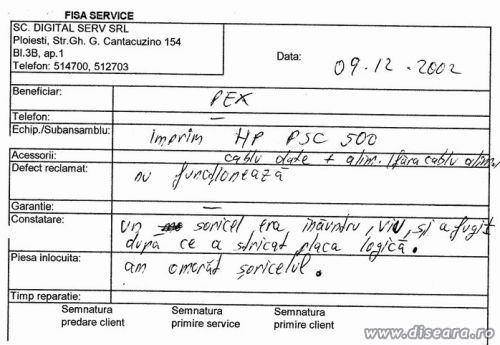 FISA SERVICE
SC. DIGITAL SERV SRL
Ploiesti, Str.Gh. G. Cantacuzino 154
Bl.3B, ap.1
Telefon: 514700, 512703
Data: 09.12.2002
Beneficiar: PEX
Telefon: —
Echip./Subansamblu: Imprim HP PSC 500
Accesorii: cablu date + alim. (fara cablu alim)
Defect reclamat: nu funcţionează
Garantie: —
Constatare: un soricel era înăuntru, viu, şi a fugit
după ce a stricat placa logică.
Piesa inlocuita: am omorât şoricelul.
Timp reparatie:
Semnatura predare client
Semnatura primire service
Semnatura primire client
www.diseara.ro